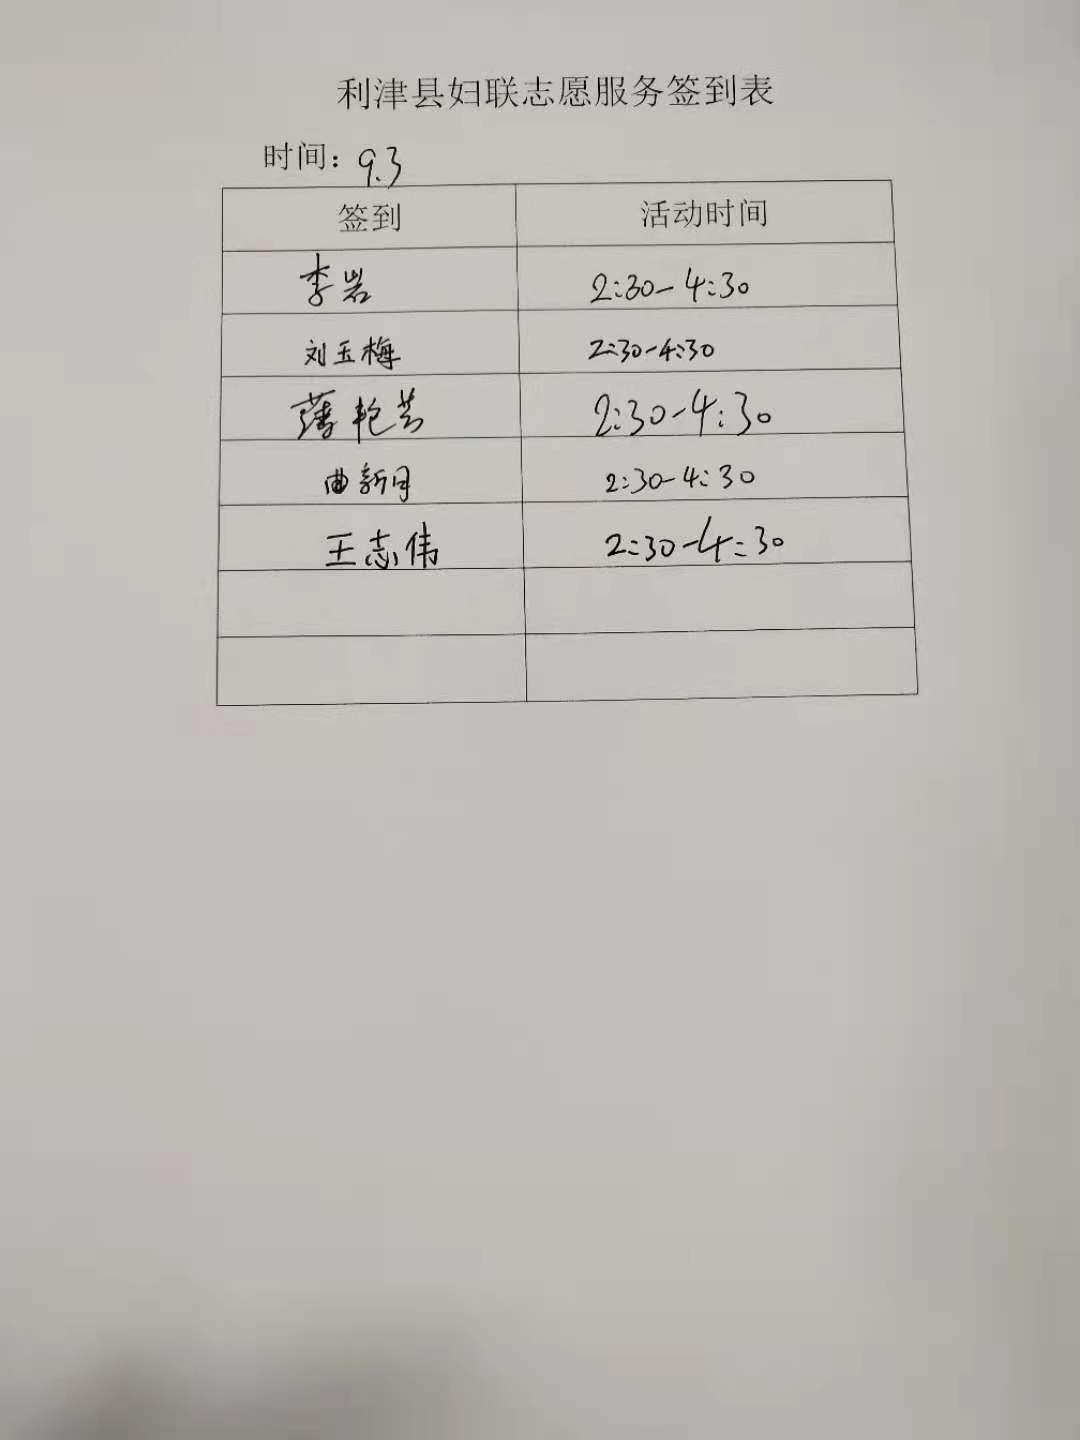 利津县妇联志愿服务签到表
时间：9.3
签到 活动时间
李岩 2:30-4:30
刘玉梅 2:30-4:30
薄艳芸 2:30-4:30
曲新月 2:30-4:30
王志伟 2:30-4:30